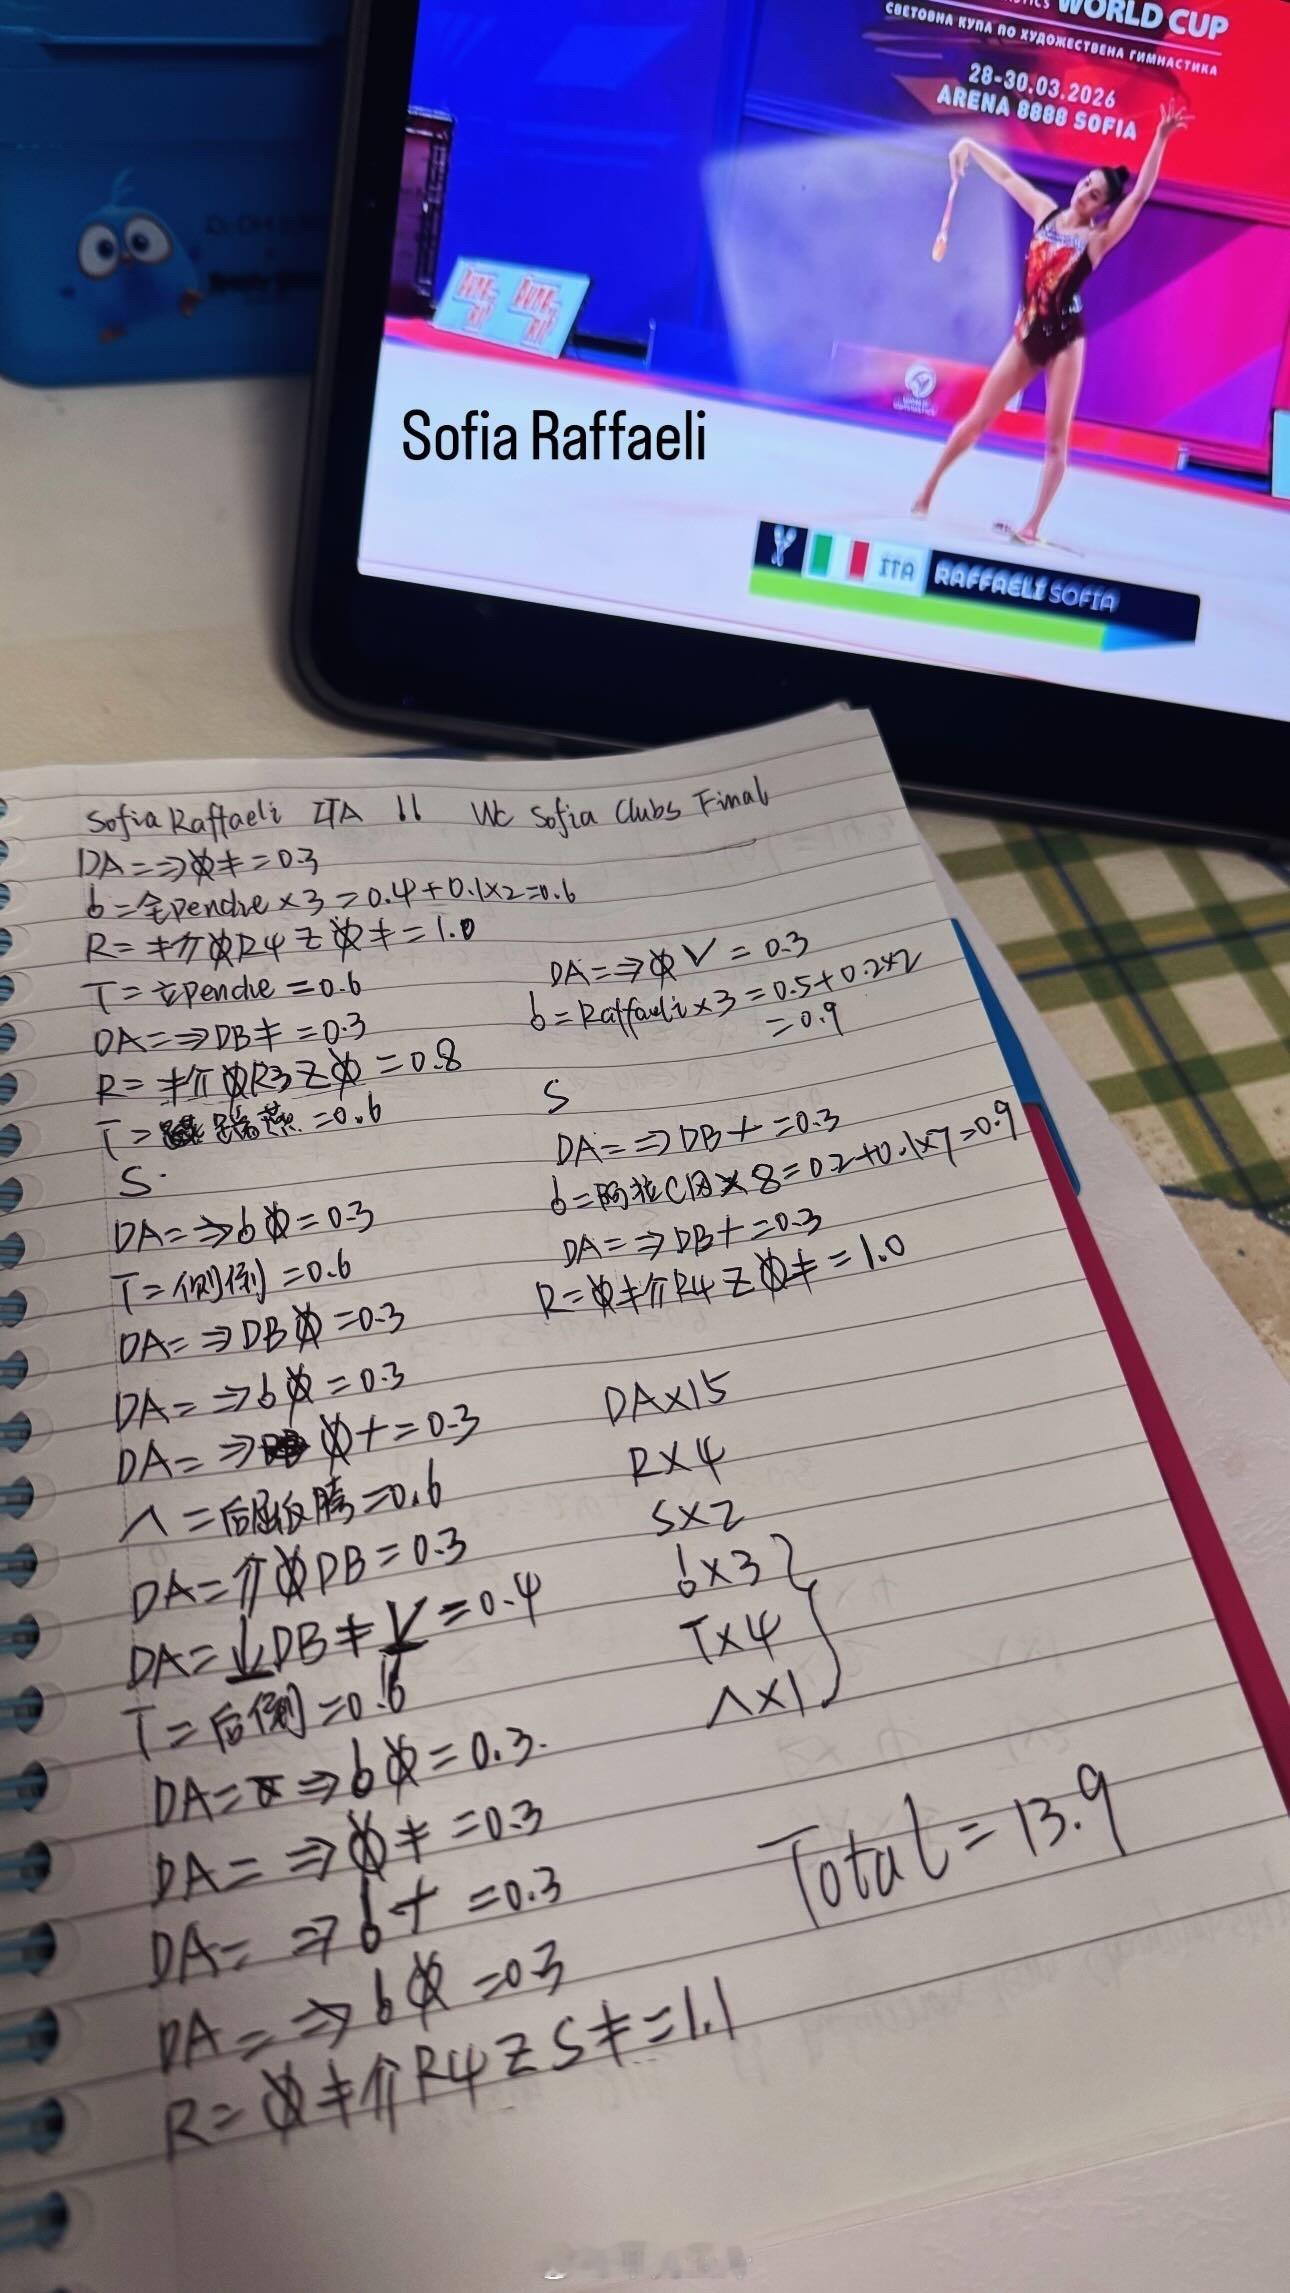 WORLD CUP
СВЕТОВНА КУПА ПО ХУДОЖЕСТВЕНА ГИМНАСТИКА
28-30.03.2026
ARENA 8888 SOFIA
Sofia Raffaeli
ITA RAFFAELI SOFIA
Sofia Raffaeli ITA 11 WC Sofia Clubs Final
DA= ⇒ = 0.3
b = 全penche × 3 = 0.4 + 0.1×2 = 0.6
R = R4 Z = 1.0
T = 立penche = 0.6
DA= ⇒ DB ≠ = 0.3
R = R3 Z = 0.8
T = 踹燕 = 0.6
S
DA= ⇒ b = 0.3
T = 侧倒 = 0.6
DA= ⇒ DB = 0.3
DA= ⇒ b = 0.3
DA= ⇒ + = 0.3
∧ = 后屈反跨 = 0.6
DA= DB = 0.3
DA= ↓ DB ≠ V = 0.4
T = 后倒 = 0.6
DA= ⇒ b = 0.3
DA= ⇒ ≠ = 0.3
DA= ⇒ b + = 0.3
DA= ⇒ b = 0.3
R = R4 Z S ≠ = 1.1
DA= ⇒ V = 0.3
b = Raffaeli × 3 = 0.5 + 0.2×2
= 0.9
S
DA= ⇒ DB + = 0.3
b = 阿拉C × 8 = 0.2 + 0.1×7 = 0.9
DA= ⇒ DB + = 0.3
R = R4 Z ≠ = 1.0
DA×15
R×4
S×2
b×3
T×4
∧×1
Total = 13.9